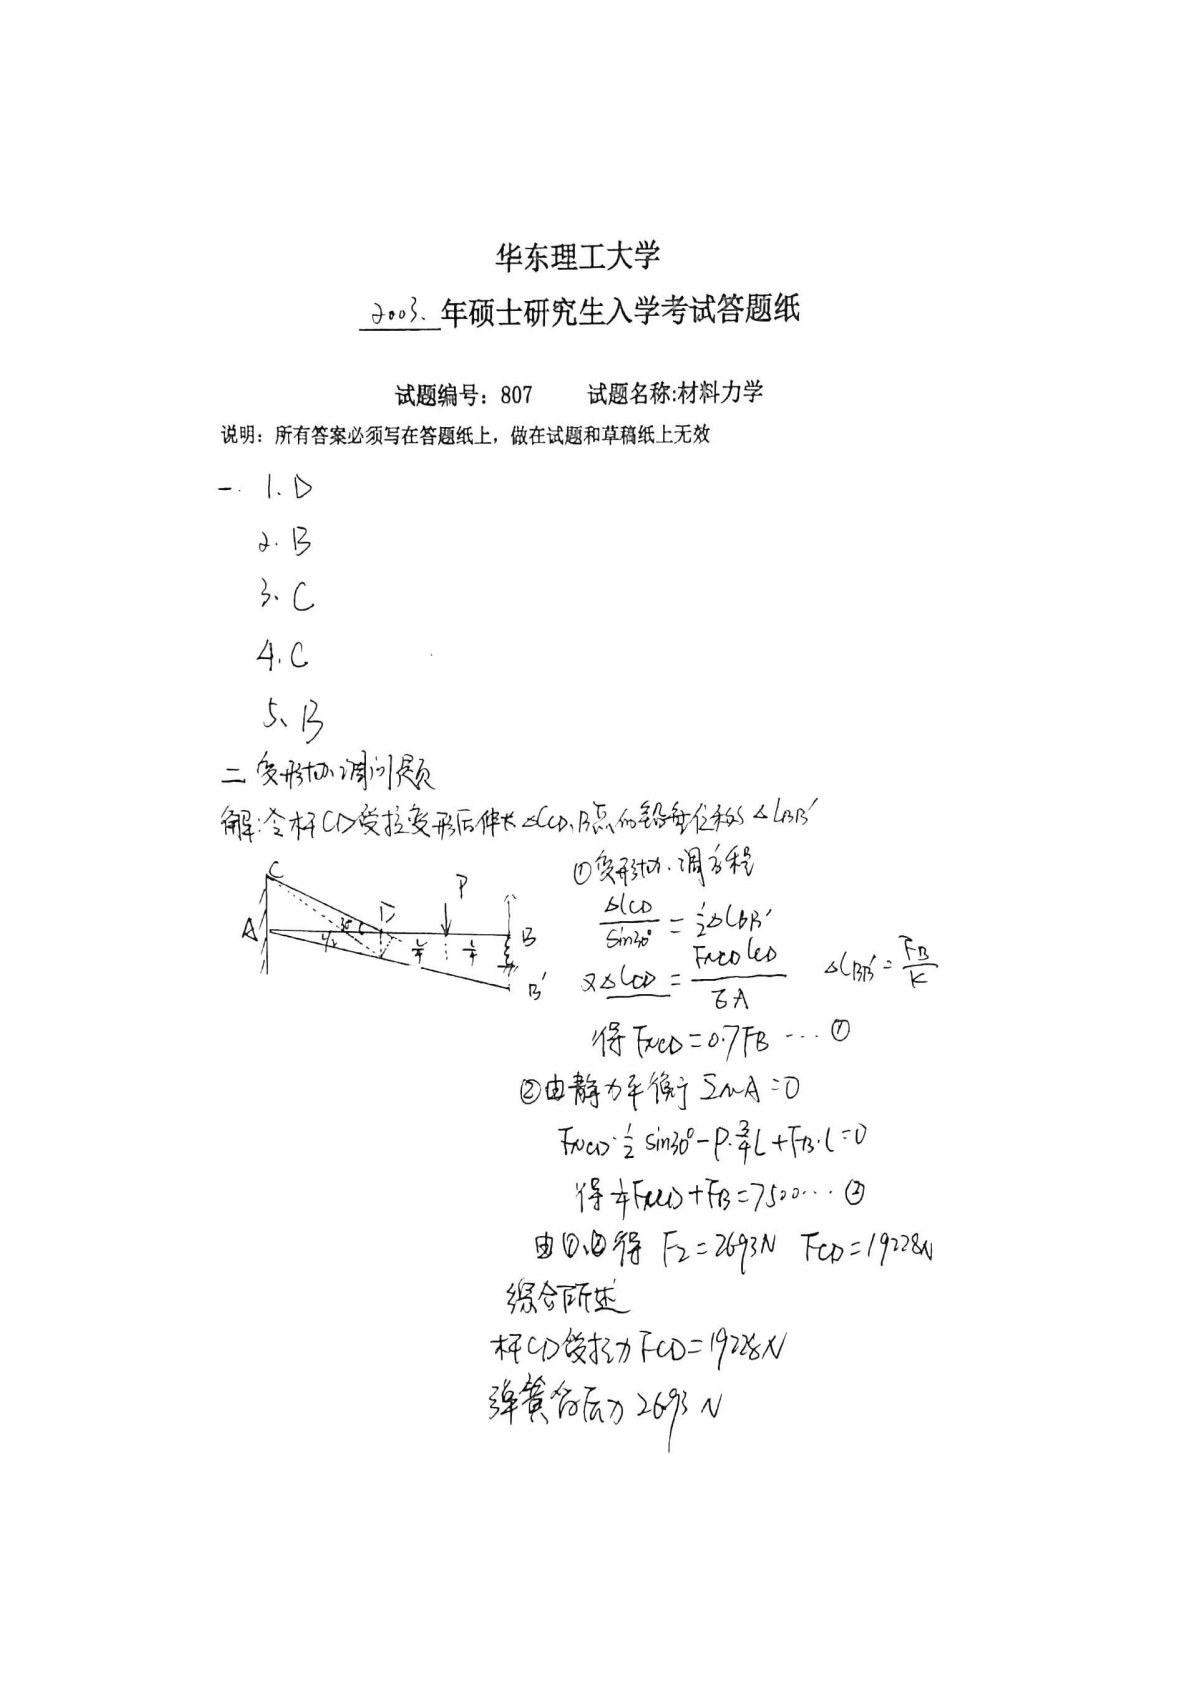 华东理工大学
2003、年硕士研究生入学考试答题纸
试题编号：807 试题名称:材料力学
说明：所有答案必须写在答题纸上，做在试题和草稿纸上无效
一. 1. D
2. B
3. C
4. C
5. B
二 变形协调问题
解:令杆CD受拉变形后伸长△LCD,B点的铅垂位移为△LBB′
①变形协调方程
△lCD/sin30° = 1/2△LBB′
又△LCD = FNCD lCD/EA △LBB′ = FB/K
得 FNCD = 0.7FB ··· ①
②由静力平衡 ΣmA = 0
FNCD·1/2 sin30° - P·3/4 L + FB·L = 0
得 1/4 FNCD + FB = 7500 ··· ②
由①、②得 F2 = 2693N FCD = 19228N
综合所述
杆CD受拉力FCD = 19228N
弹簧的压力 2693 N
C
A
30°
L/2
D
P
L/4
L/4
B
B′